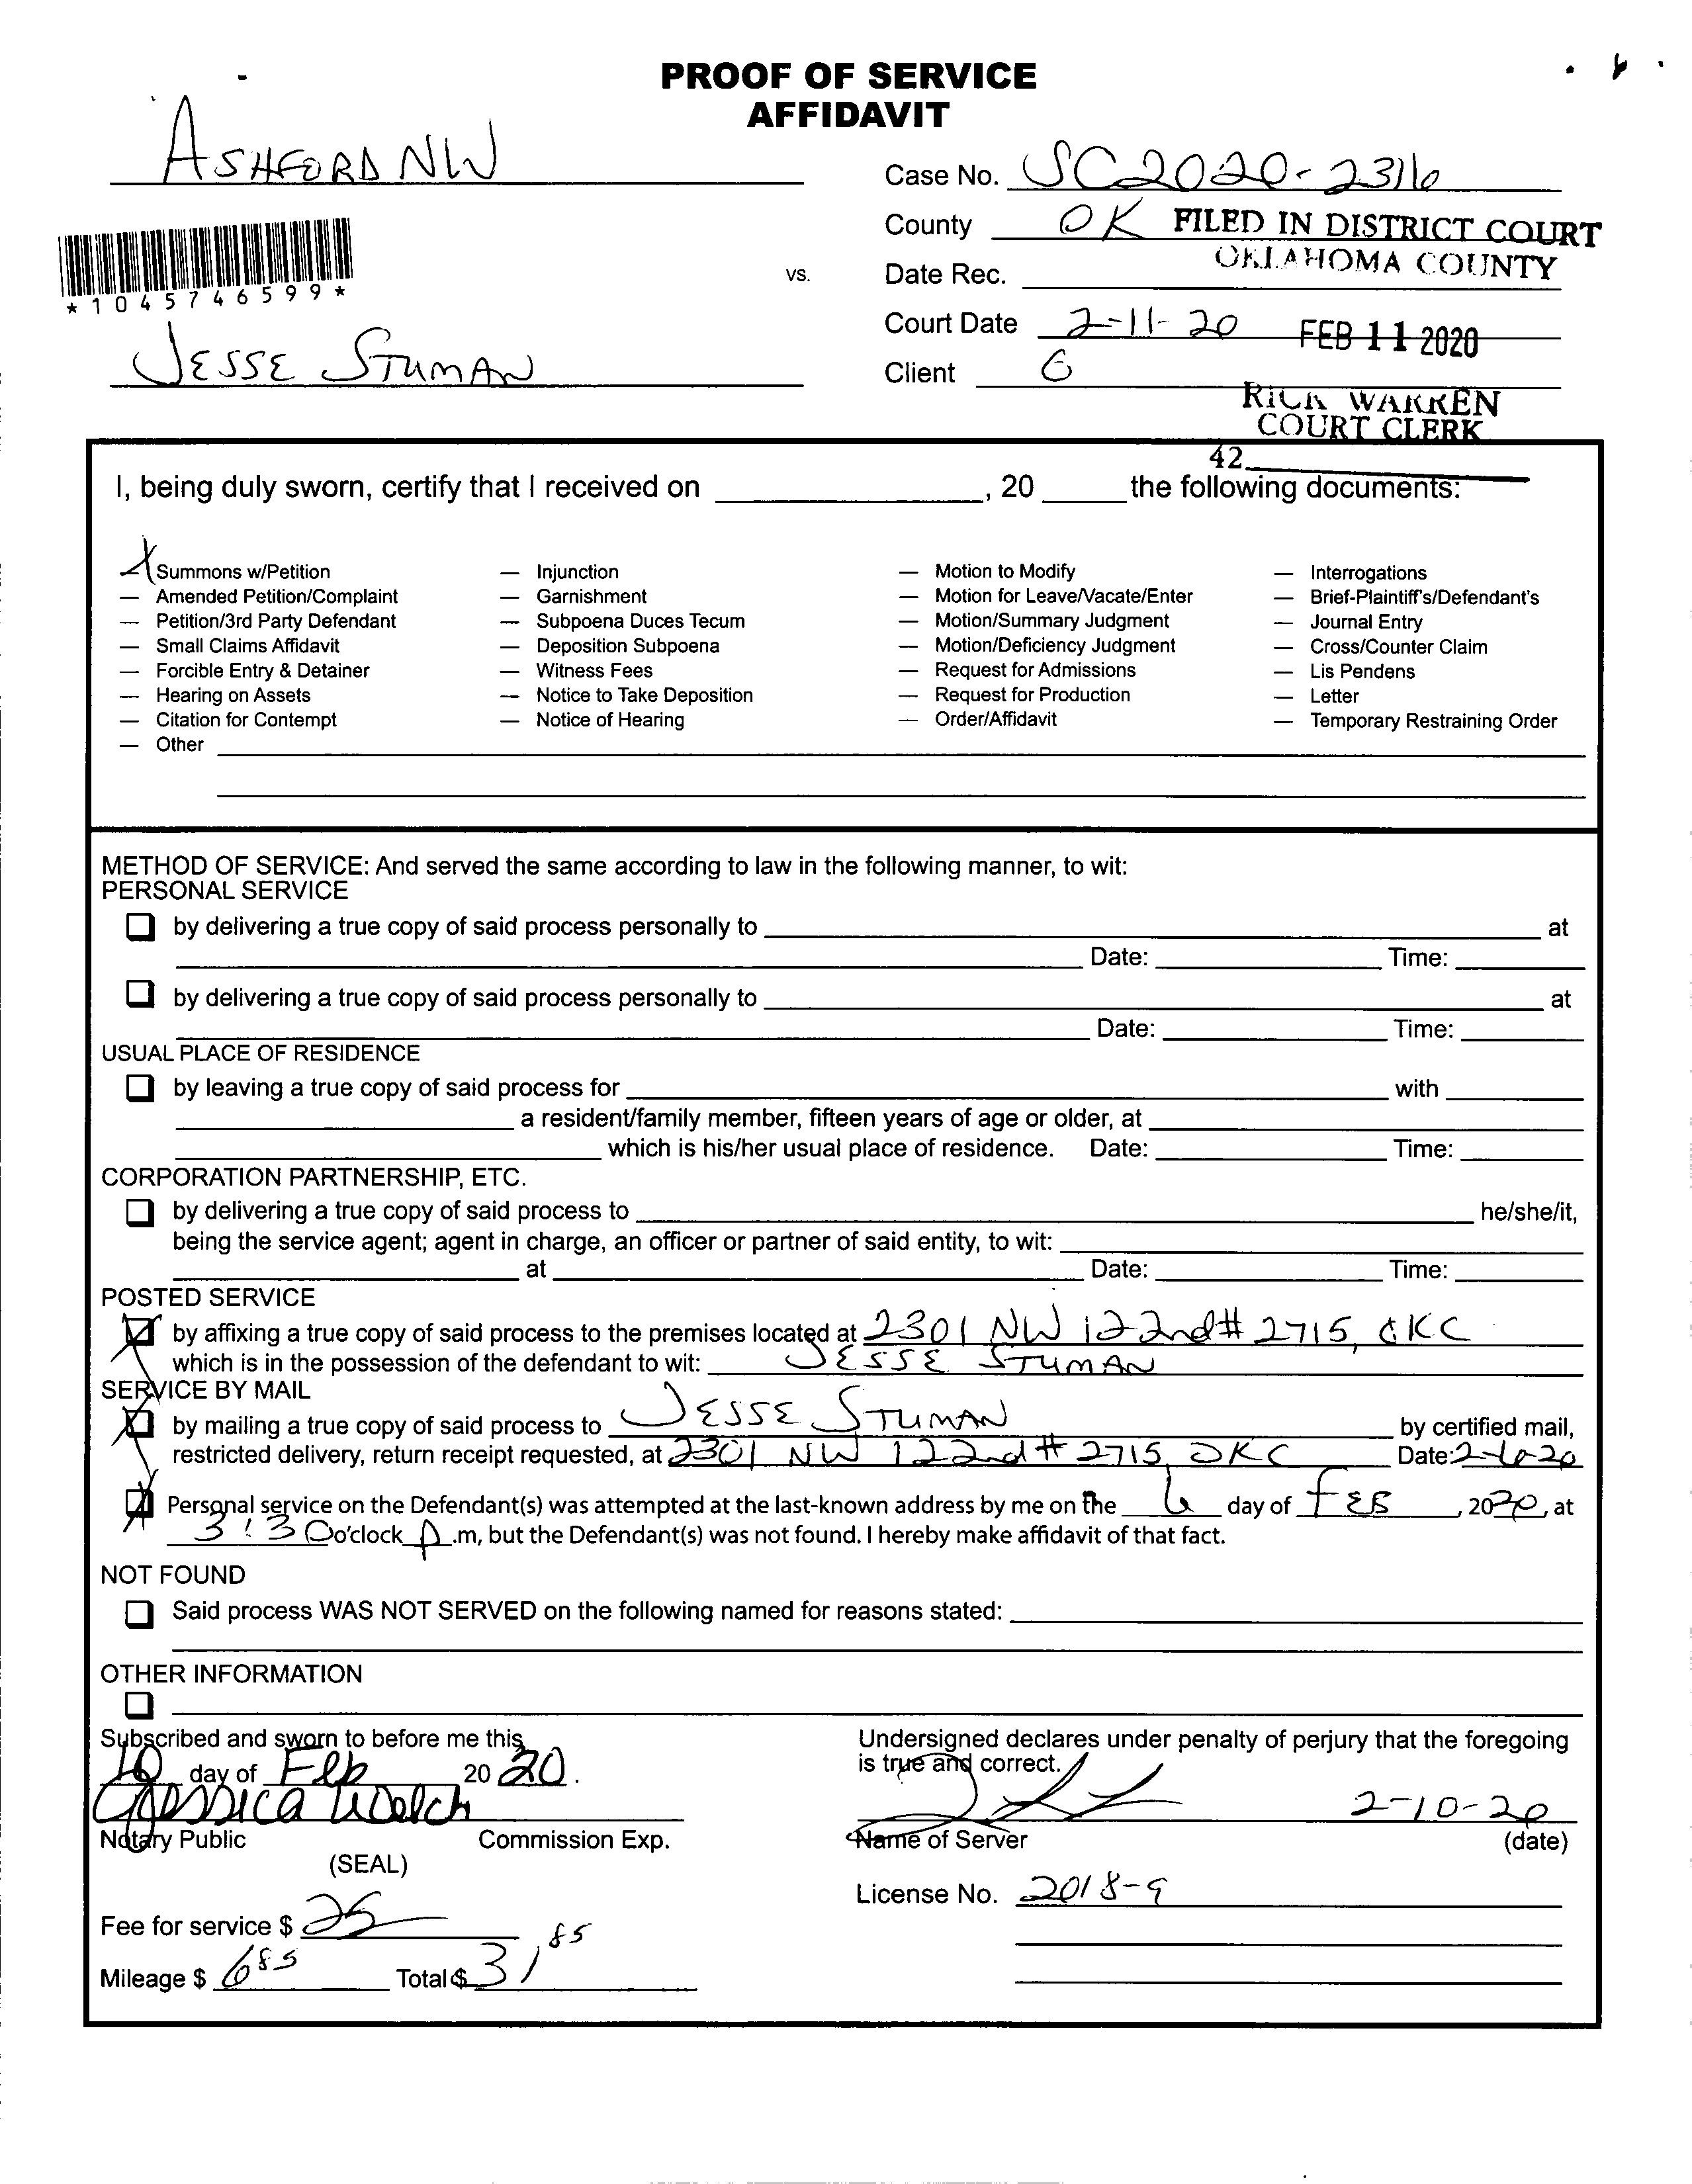 PROOF OF SERVICE
AFFIDAVIT
ASHFORD NW
Case No. SC2020-2316
County OK
FILED IN DISTRICT COURT
OKLAHOMA COUNTY
*1045746599*
vs.
Date Rec.
Court Date 2-11-20
FEB 11 2020
JESSE STUMAN
Client 6
RICK WARREN
COURT CLERK
42
I, being duly sworn, certify that I received on , 20 the following documents:
X Summons w/Petition
— Amended Petition/Complaint
— Petition/3rd Party Defendant
— Small Claims Affidavit
— Forcible Entry & Detainer
— Hearing on Assets
— Citation for Contempt
— Other
— Injunction
— Garnishment
— Subpoena Duces Tecum
— Deposition Subpoena
— Witness Fees
— Notice to Take Deposition
— Notice of Hearing
— Motion to Modify
— Motion for Leave/Vacate/Enter
— Motion/Summary Judgment
— Motion/Deficiency Judgment
— Request for Admissions
— Request for Production
— Order/Affidavit
— Interrogations
— Brief-Plaintiff's/Defendant's
— Journal Entry
— Cross/Counter Claim
— Lis Pendens
— Letter
— Temporary Restraining Order
METHOD OF SERVICE: And served the same according to law in the following manner, to wit:
PERSONAL SERVICE
by delivering a true copy of said process personally to at
Date: Time:
by delivering a true copy of said process personally to at
Date: Time:
USUAL PLACE OF RESIDENCE
by leaving a true copy of said process for with
a resident/family member, fifteen years of age or older, at
which is his/her usual place of residence. Date: Time:
CORPORATION PARTNERSHIP, ETC.
by delivering a true copy of said process to he/she/it,
being the service agent; agent in charge, an officer or partner of said entity, to wit:
at Date: Time:
POSTED SERVICE
by affixing a true copy of said process to the premises located at 2301 NW 122nd # 2715, OKC
which is in the possession of the defendant to wit: JESSE STUMAN
SERVICE BY MAIL
by mailing a true copy of said process to JESSE STUMAN by certified mail,
restricted delivery, return receipt requested, at 2301 NW 122nd # 2715, OKC Date: 2-10-20
Personal service on the Defendant(s) was attempted at the last-known address by me on the 6 day of FEB, 2020, at
3:30 o'clock p.m, but the Defendant(s) was not found. I hereby make affidavit of that fact.
NOT FOUND
Said process WAS NOT SERVED on the following named for reasons stated:
OTHER INFORMATION
Subscribed and sworn to before me this
10 day of Feb 2020.
Jessica Welch
Notary Public Commission Exp.
(SEAL)
Undersigned declares under penalty of perjury that the foregoing
is true and correct.
2-10-20
Name of Server (date)
License No. 2018-9
Fee for service $ 25
Mileage $ 6 85 Total $ 31,85